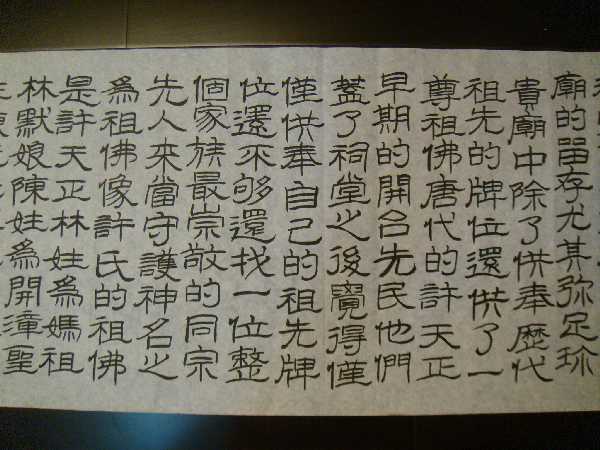 廟的留存尤其弥足珎
貴廟中除了供奉歷代
祖先的牌位還供了一
尊祖佛唐代的許天正
早期的開台先民他們
蓋了祠堂之後覺得僅
僅供奉自己的祖先牌
位還不够還找一位整
個家族最崇敬的同宗
先人來當守護神名之
爲祖佛像許氏的祖佛
是許天正林姓爲媽祖
林默娘陳姓爲開漳聖